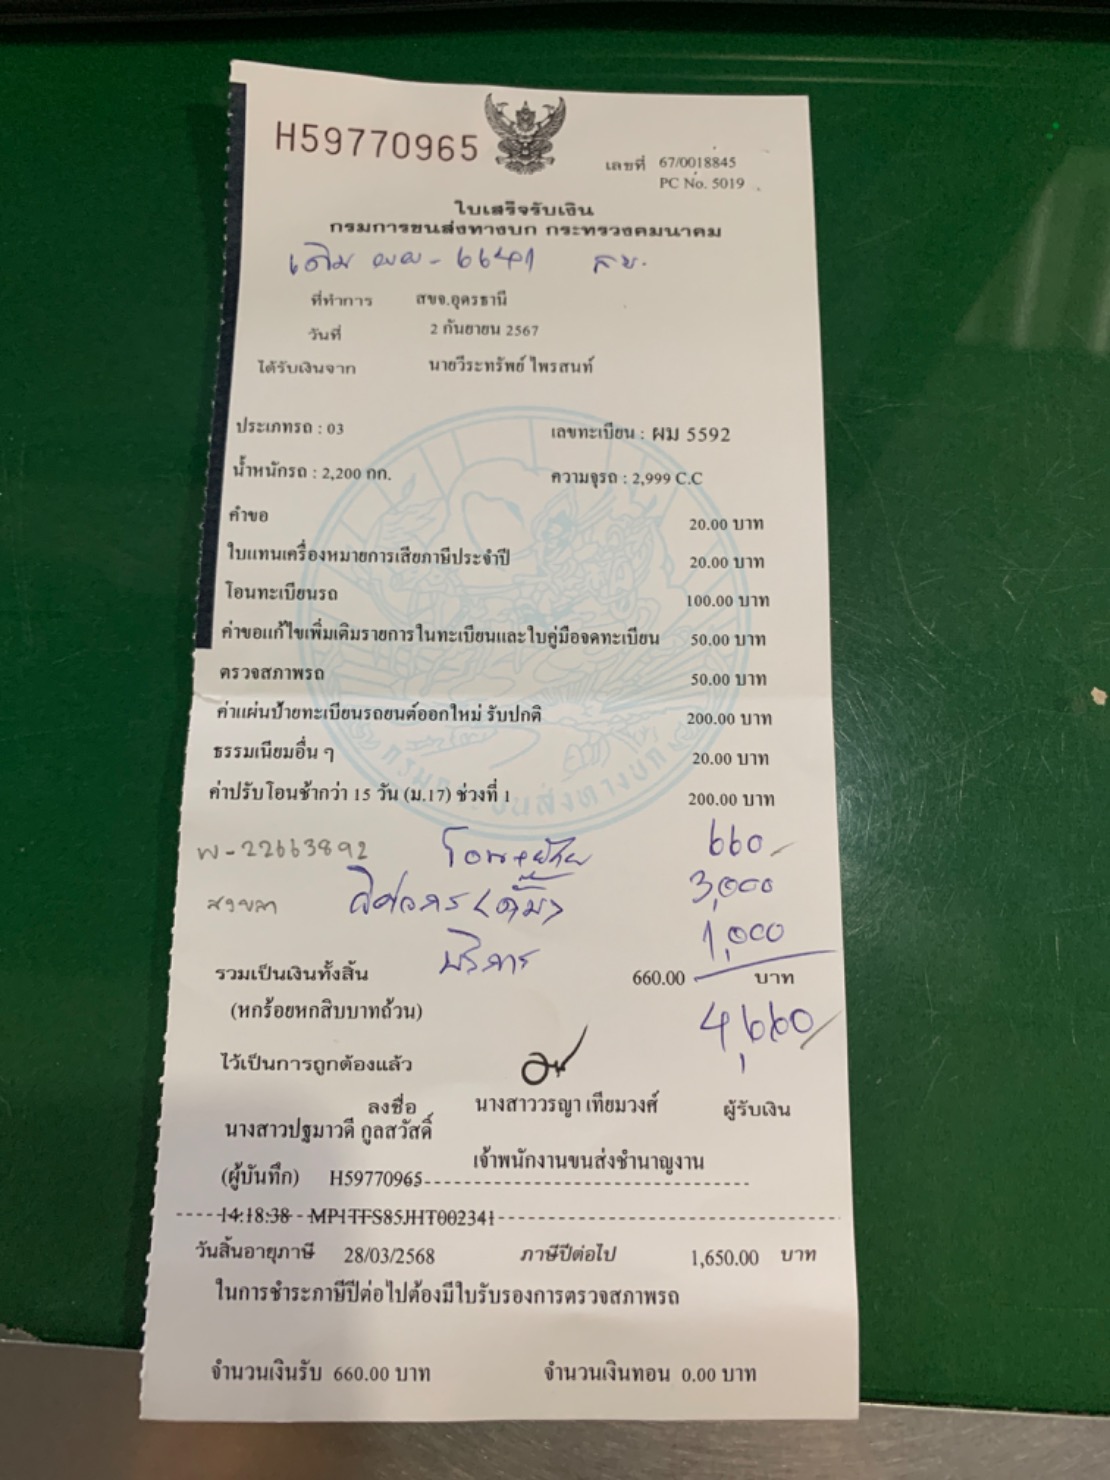 H59770965
เลขที่ 67/0018845
PC No. 5019
ใบเสร็จรับเงิน
กรมการขนส่งทางบก กระทรวงคมนาคม
เดิม 6641
ที่ทำการ สขจ.อุดรธานี
วันที่ 2 กันยายน 2567
ได้รับเงินจาก นายวีระทรัพย์ ไพรสนท์
ประเภทรถ : 03 เลขทะเบียน : ผม 5592
น้ำหนักรถ : 2,200 กก. ความจุรถ : 2,999 C.C
คำขอ 20.00 บาท
ใบแทนเครื่องหมายการเสียภาษีประจำปี 20.00 บาท
โอนทะเบียนรถ 100.00 บาท
ค่าขอแก้ไขเพิ่มเติมรายการในทะเบียนและใบคู่มือจดทะเบียน 50.00 บาท
ตรวจสภาพรถ 50.00 บาท
ค่าแผ่นป้ายทะเบียนรถยนต์ออกใหม่ รับปกติ 200.00 บาท
ธรรมเนียมอื่น ๆ 20.00 บาท
ค่าปรับโอนช้ากว่า 15 วัน (ม.17) ช่วงที่ 1 200.00 บาท
กรมการขนส่งทางบก
W-22663892 โอน+ย้าย 660
สงขลา 3,000
บริการ 1,000
รวมเป็นเงินทั้งสิ้น 660.00 บาท
(หกร้อยหกสิบบาทถ้วน) 4,660
ไว้เป็นการถูกต้องแล้ว
ลงชื่อ นางสาววรญา เทียมวงศ์ ผู้รับเงิน
นางสาวปฐมาวดี กูลสวัสดิ์
เจ้าพนักงานขนส่งชำนาญงาน
(ผู้บันทึก) H59770965
14:18:38 - MP1TFS85JHT002341
วันสิ้นอายุภาษี 28/03/2568 ภาษีปีต่อไป 1,650.00 บาท
ในการชำระภาษีปีต่อไปต้องมีใบรับรองการตรวจสภาพรถ
จำนวนเงินรับ 660.00 บาท จำนวนเงินทอน 0.00 บาท